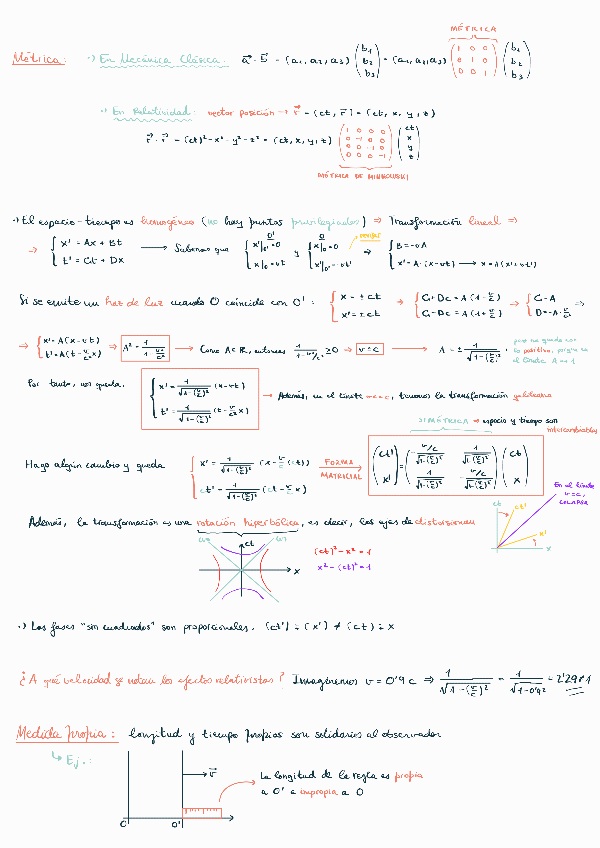 MÉTRICA
Métrica: ·) En Mecánica Clásica: a⃗ · b⃗ = (a₁, a₂, a₃) (b₁ b₂ b₃) = (a₁, a₂, a₃) (1 0 0 / 0 1 0 / 0 0 1) (b₁ b₂ b₃)
·) En Relatividad: vector posición → r⃗ = (ct, r⃗) = (ct, x, y, z)
r⃗ · r⃗ = (ct)² - x² - y² - z² = (ct, x, y, z) (1 0 0 0 / 0 -1 0 0 / 0 0 -1 0 / 0 0 0 -1) (ct x y z)
MÉTRICA DE MINKOWSKI
·) El espacio-tiempo es homogéneo (no hay puntos privilegiados) ⇒ Transformación lineal ⇒
→ { x' = Ax + Bt / t' = Ct + Dx → Sabemos que O' { x'|₀' = 0 / x|₀' = vt y O { x|₀ = 0 / x'|₀ = -vt' ⇒ { B = -vA / x' = A·(x-vt) → x = A(x'+vt')
Si se emite un haz de luz cuando O coincide con O': { x = ± ct / x' = ± ct → { C+Dc = A(1-v/c) / C-Dc = A(1+v/c) → { C = A / D = -A·v/c² ⇒
⇒ { x' = A(x-vt) / t' = A(t-v/c² x) ⇒ A² = 1/(1-v²/c²) → Como A∈ℝ, entonces 1/(1-v²/c²) ≥ 0 → v = c → A = ± 1/√(1-(v/c)²)
Por tanto, nos queda: { x' = 1/√(1-(v/c)²) (x-vt) / t' = 1/√(1-(v/c)²) (t-v/c² x) → Además, en el límite v<<c, tenemos la transformación galileana
SIMETRÍA ⇒ espacio y tiempo son
intercambiables
Hago algún cambio y queda { x' = 1/√(1-(v/c)²) (x - v/c (ct)) / ct' = 1/√(1-(v/c)²) (ct - v/c x) FORMA MATRICIAL → (ct' x') = (-v/c/√(1-(v/c)²) 1/√(1-(v/c)²) / 1/√(1-(v/c)²) -v/c/√(1-(v/c)²)) (ct x)
En el límite
v=c,
COLAPSA
ct ct' x' x
Además, la transformación es una rotación hiperbólica, es decir, los ejes de distorsionan
ct x
(ct)² - x² = 1
x² - (ct)² = 1
·) Las fases "sin cuadrados" son proporcionales. (ct') ÷ (x') ≠ (ct) ÷ x
¿A qué velocidad se notan los efectos relativistas? Imaginemos v = 0'9 c ⇒ 1/√(1-(v/c)²) = 1/√(1-0'9²) = 2'2941
Medida propia: longitud y tiempo propios son solidarios al observador
↳ Ej.:
v⃗
La longitud de la regla es propia
a O' e impropia a O
O O'